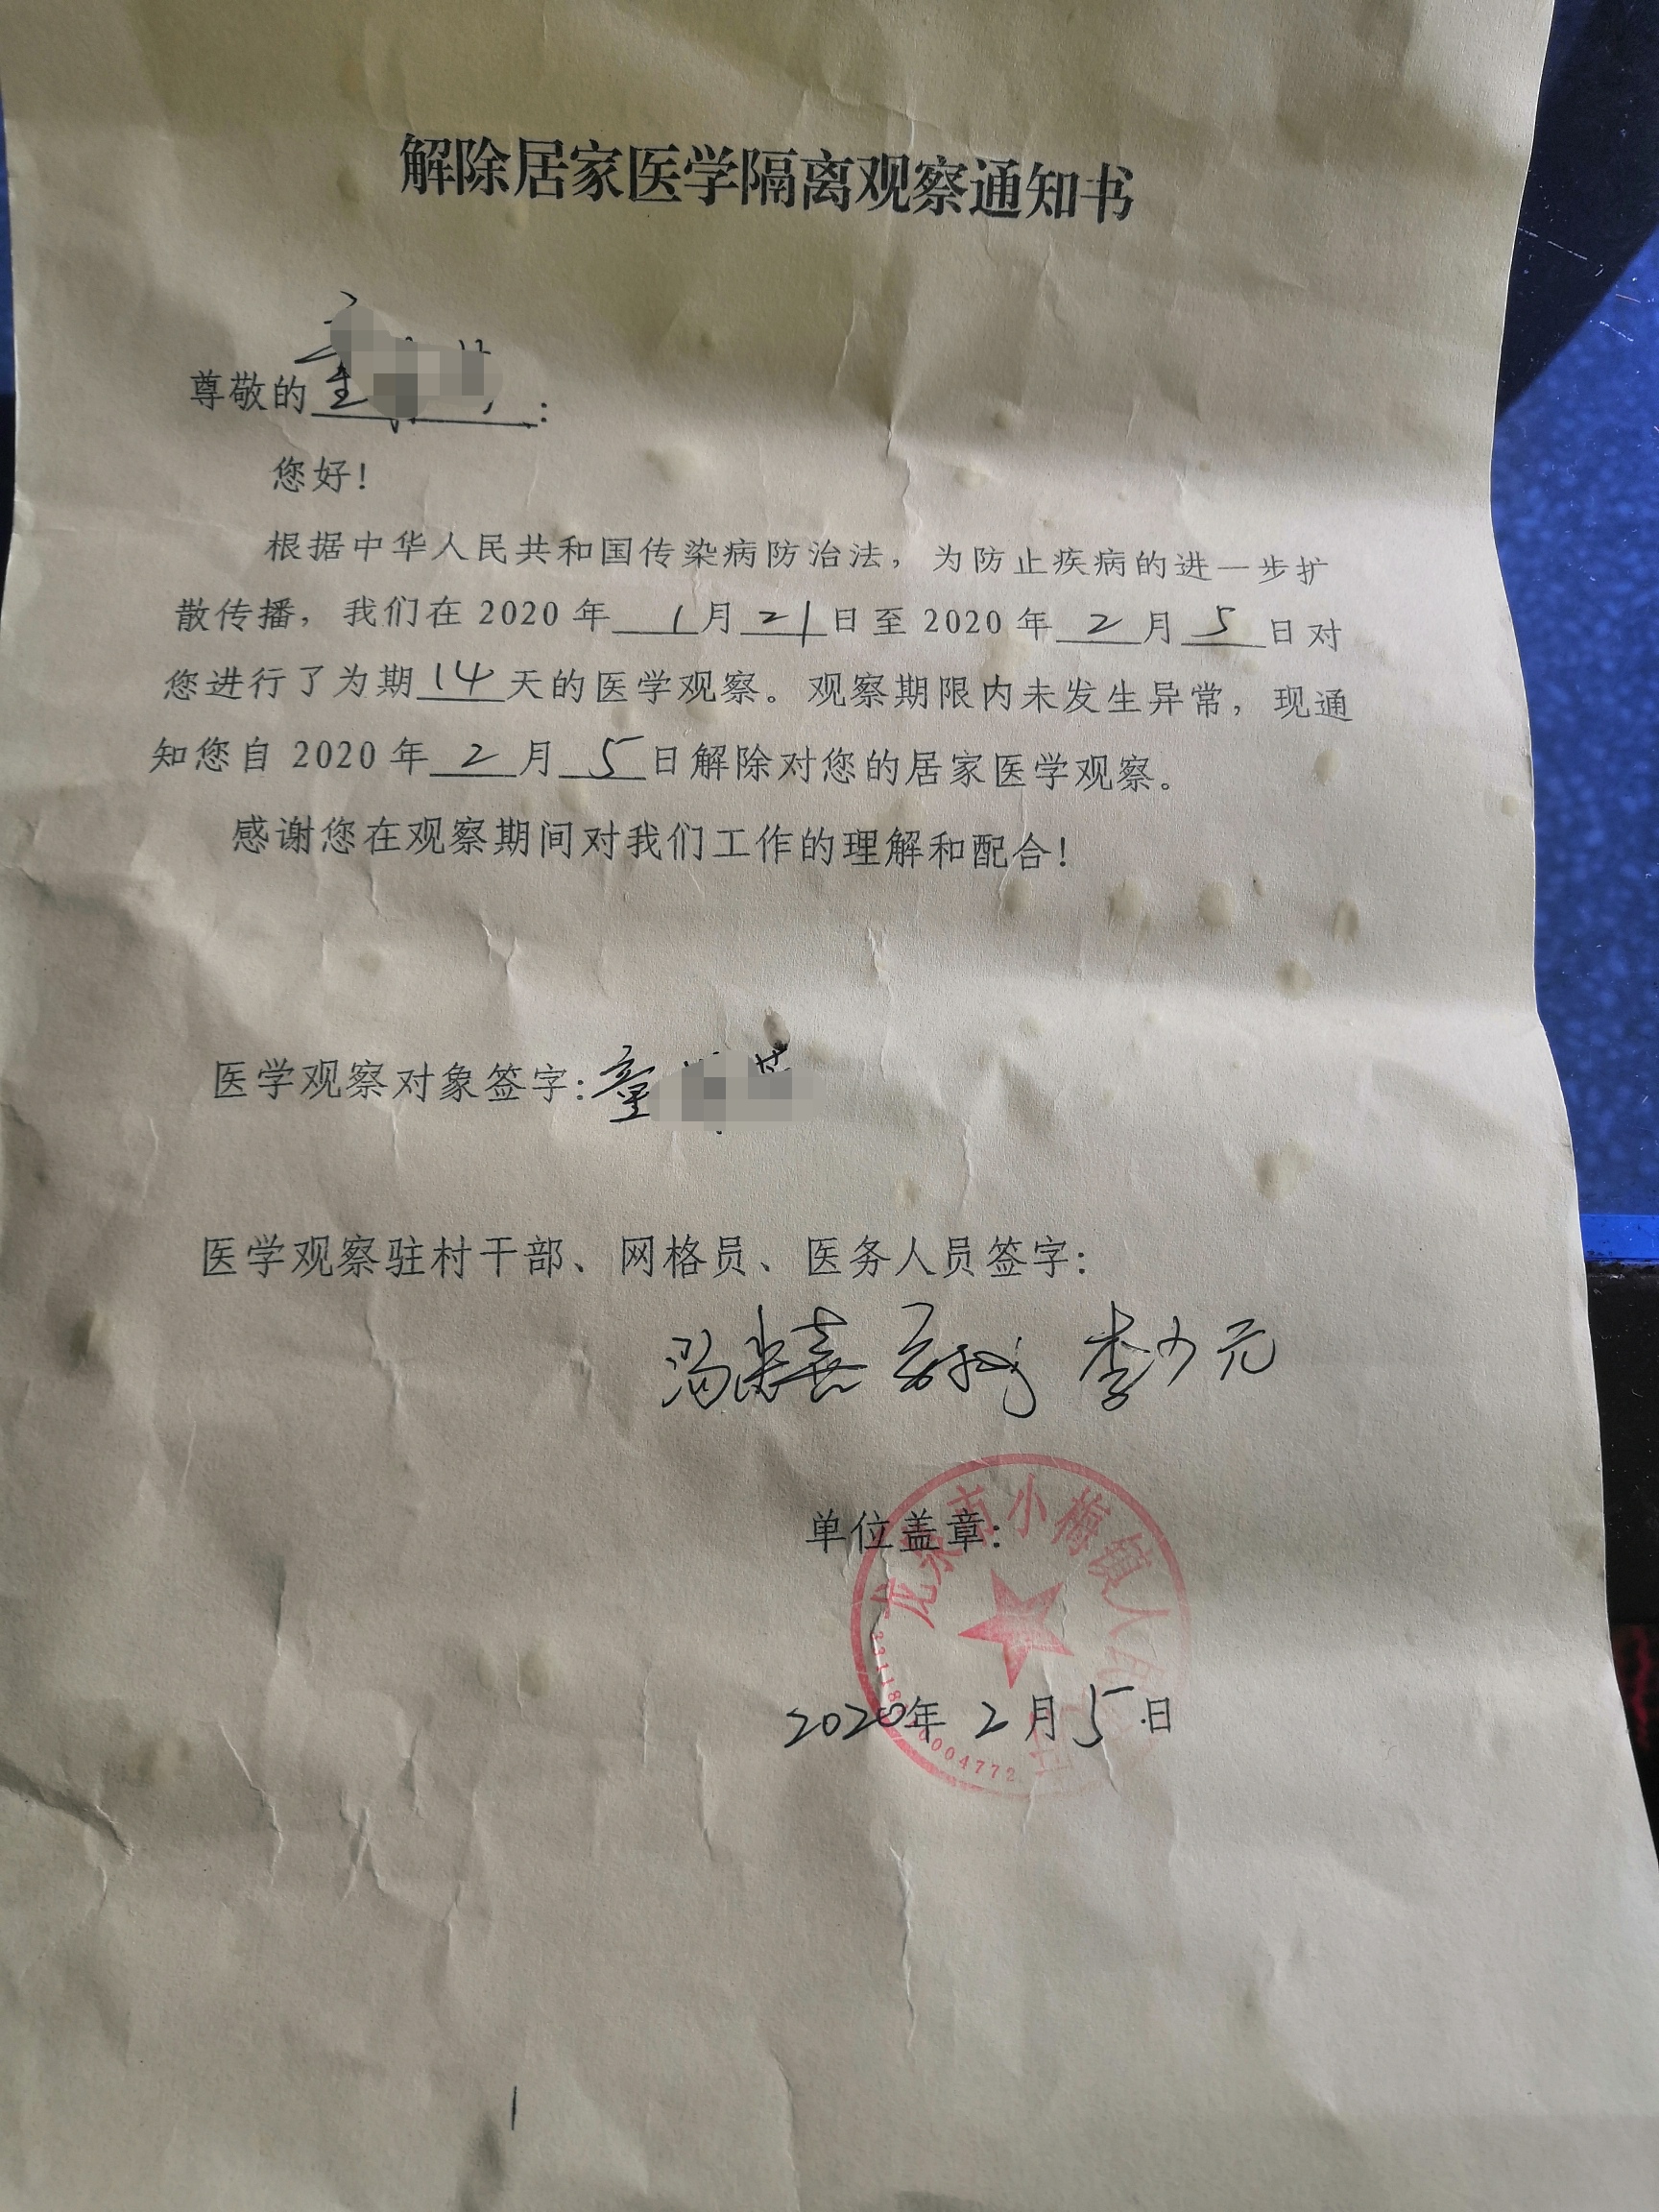 解除居家医学隔离观察通知书
尊敬的童:
您好!
根据中华人民共和国传染病防治法，为防止疾病的进一步扩
散传播，我们在 2020 年 1 月 21 日至 2020 年 2 月 5 日对
您进行了为期 14 天的医学观察。观察期限内未发生异常，现通
知您自 2020 年 2 月 5 日解除对您的居家医学观察。
感谢您在观察期间对我们工作的理解和配合!
医学观察对象签字:童
医学观察驻村干部、网格员、医务人员签字:
李少元
单位盖章:
龙泉市小梅镇人民
2020年 2 月 5 日